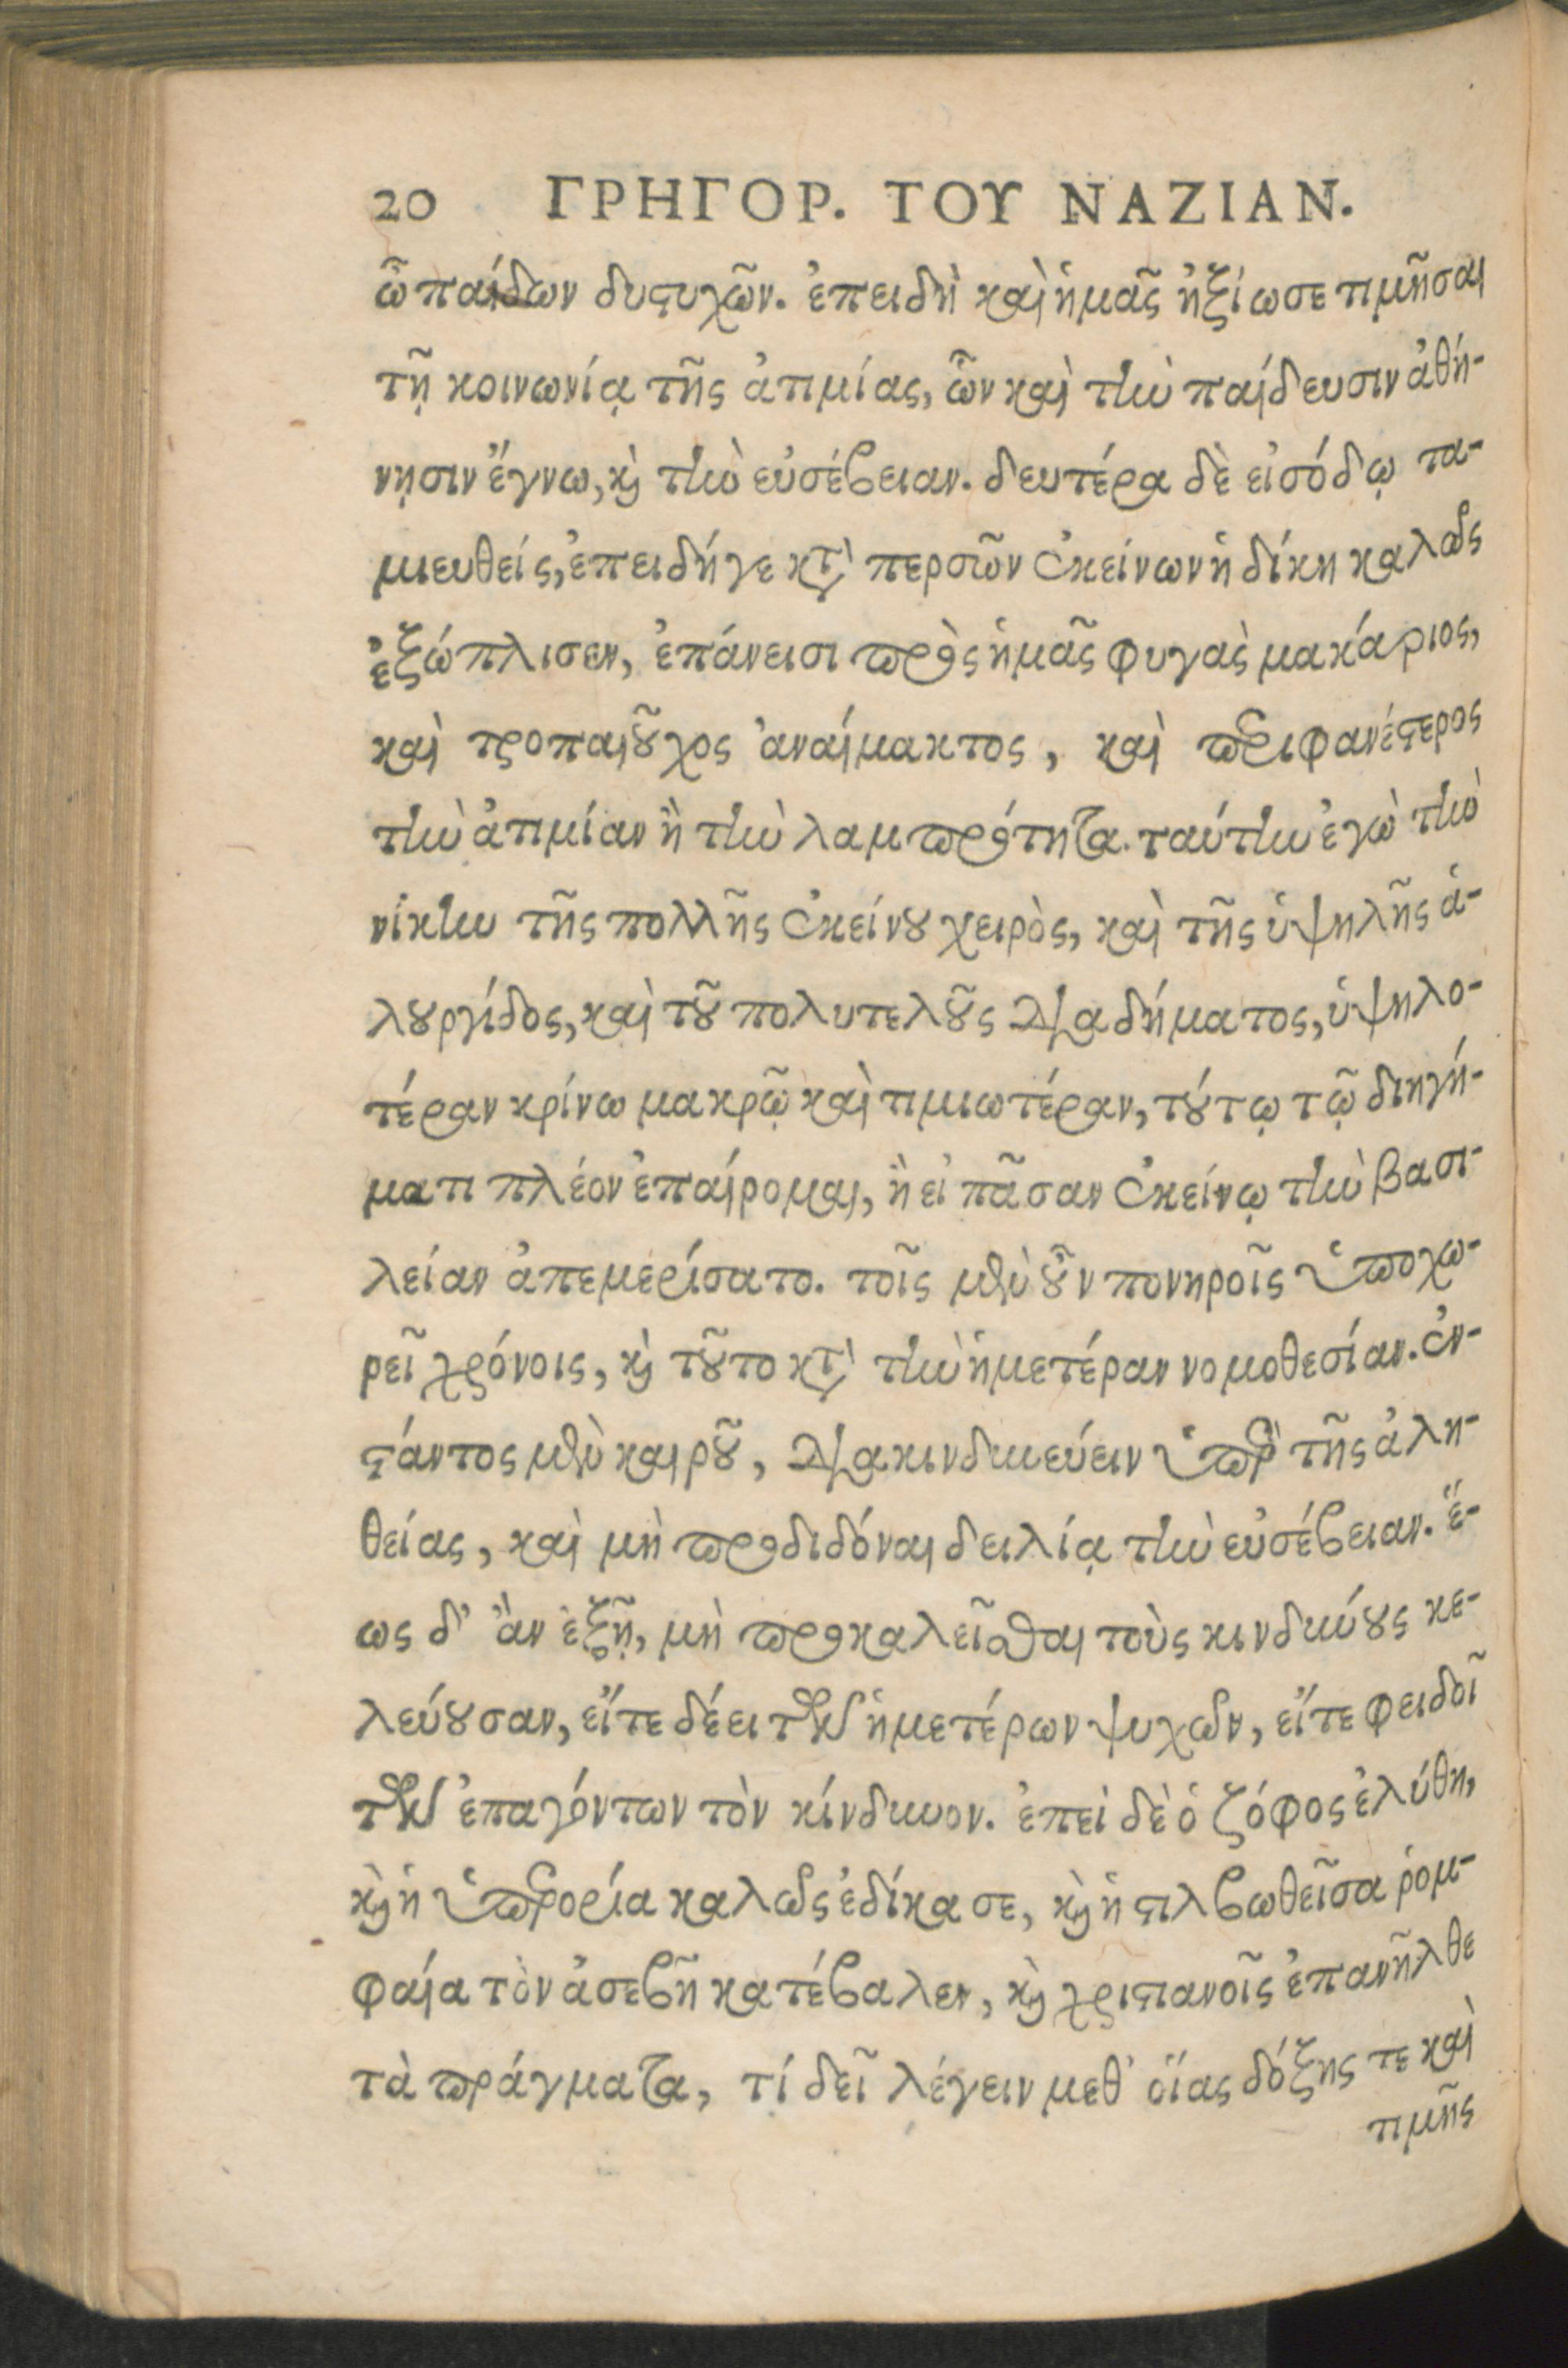 20 ΓΡΗΓΟΡ. ΤΟΥ ΝΑΖΙΑΝ.
ὦ παίδων δυςυχῶν. ἐπειδὴ καὶ ἡμᾶς ἠξίωσε τιμῆσαι
τῇ κοινωνίᾳ τῆς ἀτιμίας, ὧν καὶ τὴν παίδευσιν ἀθή-
νῃσιν ἔγνω, καὶ τὴν εὐσέβειαν. δευτέρα δὲ εἰσόδῳ τα-
μιευθείς, ἐπειδήγε κατὰ περσῶν ἐκείνων ἡ δίκη καλῶς
ἐξώπλισεν, ἐπάνεισι πρὸς ἡμᾶς φυγὰς μακάριος,
καὶ τροπαιοῦχος ἀναίμακτος, καὶ περιφανέςερος
τὴν ἀτιμίαν ἢ τὴν λαμπρότητα. ταύτην ἐγὼ τὴν
νίκην τῆς πολλῆς ἐκείνου χειρὸς, καὶ τῆς ὑψηλῆς ἁ-
λουργίδος, καὶ τοῦ πολυτελοῦς διαδήματος, ὑψηλο-
τέραν κρίνω μακρῷ καὶ τιμιωτέραν, τούτῳ τῷ διηγή-
ματι πλέον ἐπαίρομαι, ἢ εἰ πᾶσαν ἐκείνῳ τὴν βασι-
λείαν ἀπεμερίσατο. τοῖς μὲν οὖν πονηροῖς ὑποχω-
ρεῖ χρόνοις, καὶ τοῦτο κατὰ τὴν ἡμετέραν νομοθεσίαν. ἐν-
ςάντος μὲν καιροῦ, διακινδυνεύειν ὑπὲρ τῆς ἀλη-
θείας, καὶ μὴ προδιδόναι δειλίᾳ τὴν εὐσέβειαν. ἕ-
ως δ' ἂν ἐξῇ, μὴ προκαλεῖσθαι τοὺς κινδύνους κε-
λεύουσαν, εἴτε δέει τῶν ἡμετέρων ψυχῶν, εἴτε φειδοῖ
τῶν ἐπαγόντων τὸν κίνδυνον. ἐπεὶ δὲ ὁ ζόφος ἐλύθη,
καὶ ἡ ὑπερορία καλῶς ἐδίκασε, καὶ ἡ ςιλβωθεῖσα ῥομ-
φαία τὸν ἀσεβῆ κατέβαλεν, καὶ χριςιανοῖς ἐπανῆλθε
τὰ πράγματα, τί δεῖ λέγειν μεθ' οἵας δόξης τε καὶ
τιμῆς